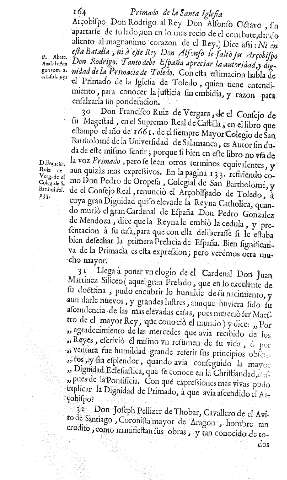 164 Primado de la Santa Iglesia
Arçobispo Don Rodrigo al Rey Don Alfonso Octavo, sin
apartarse de todo, aun en lo mas recio de el combate, dando
aliento al magnanimo coraçon de el Rey.) Dize assi: Ni en
esta Batalla, ni à este Rey Don Alfonso le faltò su Arçobispo
Don Rodrigo. Tanto debe España apreciar la autoridad, y dig-
nidad de la Primacia de Toledo. Con esta estimacion habla de
el Primado de la Iglesia de Toledo, quien tiene entendi-
miento, para conocer la justicia sin embidia, y razon para
ensalzarla sin ponderacion.
30 Don Francisco Ruiz de Vergara, de el Consejo de
su Magestad, en el Supremo Real de Castilla, en el libro que
estampò el año de 1661. de el siempre Mayor Colegio de San
Bartolomè de la Universidad de Salamanca, es Autor sin du-
da de este mismo sentir; porque si bien en este libro no vsa de
la voz Primado, pero se leen otros terminos equivalentes, y
aun quizàs mas expressivos. En la pagina 133. refiriendo co-
mo Don Pedro de Oropesa, Colegial de San Bartolomè, y
de el Consejo Real, renunciò el Arçobispado de Toledo, à
cuya gran Dignidad quiso elevarle la Reyna Catholica, quan-
do muriò el gran Cardenal de España Don Pedro Gonzalez
de Mendoza, dice que la Reyna le embiò la cedula, y pre-
sentacion à su casa, para que con ella
bien desechar la primera Prelacia de España. Bien significati-
va de la Primacia es esta expression; pero verèmos otra mu-
cho mayor.
31 Llega à poner su elogio de el Cardenal Don Juan
Martinez Siliceo; aquel gran Prelado, que en lo excelente de
su doctrina, pudo encubrir lo humilde de su nacimiento, y
aun darle nuevo, y grandes lustres, aunque huviera sido su
ascendencia de las mas elevadas casas, pues mereciò ser Maes-
tro de el mayor Rey, que conociò el mundo; y dice: „ Por
„ agradecimiento de las mercedes que avia recibido de los
„ Reyes, escriviò el mismo vn resumen de su vida, ò por
„ ventura fue humildad grande referir sus principios obscu-
„ ros, y su esplendor, quando avia conseguido la mayor
„ Dignidad Eclesiastica, que se conoce en la Christiandad, des-
„ pues de la Pontificia. Con què expressiones mas vivas pudo
explicar la Dignidad de Primado, à que avia ascendido el Ar-
çobispo?
32 Don Joseph Pellizer de Thobar, Cavallero de el Avi-
to de Santiago, Coronista mayor de Aragon, hombre tan
erudito, como manifiestan sus obras, y tan conocido de to-
dos